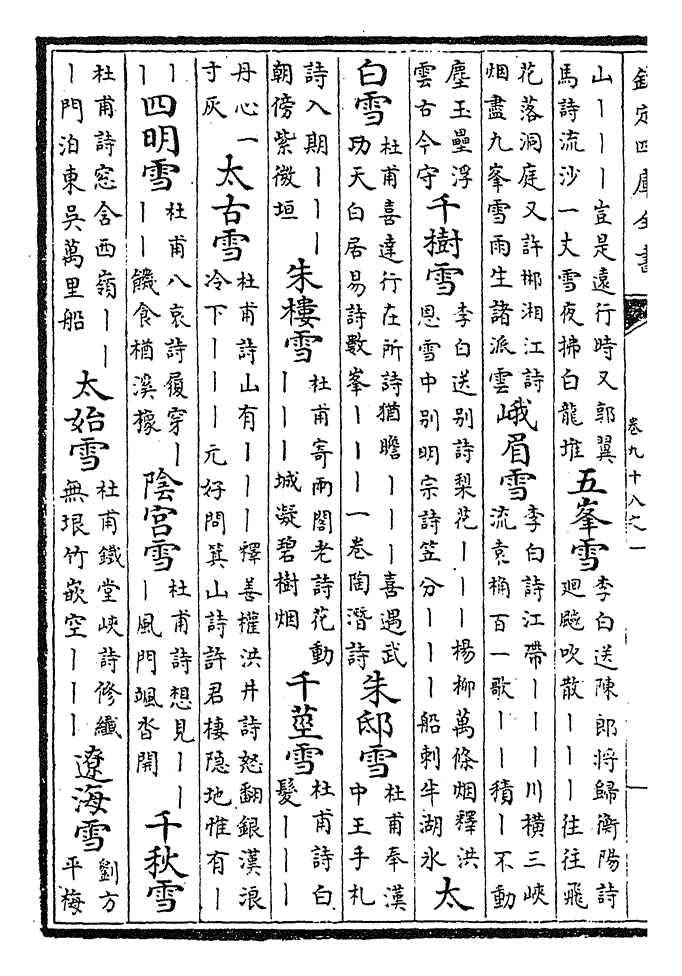 欽定四庫全書 卷九十八之一
山丨丨丨豈是遠行時又郭翼馬詩流沙一丈雪夜拂白龍堆 五峯雪 李白送陳郎將歸衡陽詩迴飈吹散丨丨丨往往飛
花落洞庭又許郴湘江詩烟盡九峯雪雨生諸派雲 峨眉雪 李白詩江帶丨丨丨川橫三峽流袁桷百一歌丨丨積丨不動
塵玉壘浮雲古今守 千樹雪 李白送别詩梨花丨丨丨楊柳萬條烟釋洪恩雪中别明宗詩笠分丨丨丨船刺牛湖氷 太
白雪 杜甫喜達行在所詩猶瞻丨丨丨喜遇武功天白居易詩數峯丨丨丨一卷陶潛詩 朱邸雪 杜甫奉漢中王手札
詩入期丨丨丨朝傍紫微垣 朱樓雪 杜甫寄兩閣老詩花動丨丨丨城凝碧樹烟 千莖雪 杜甫詩白髪丨丨丨
丹心一寸灰 太古雪 杜甫詩山有丨丨丨釋善權洪井詩怒翻銀漢浪冷下丨丨丨元好問箕山詩許君棲隐地惟有丨
丨丨 四明雪 杜甫八哀詩履穿丨丨丨饑食楢溪橡 陰宮雪 杜甫詩想見丨丨丨風門颯沓開 千秋雪
杜甫詩窓含西嶺丨丨丨門泊東吳萬里船 太始雪 杜甫鐵堂峽詩修纖無垠竹嵌空丨丨丨 遼海雪 劉方平梅